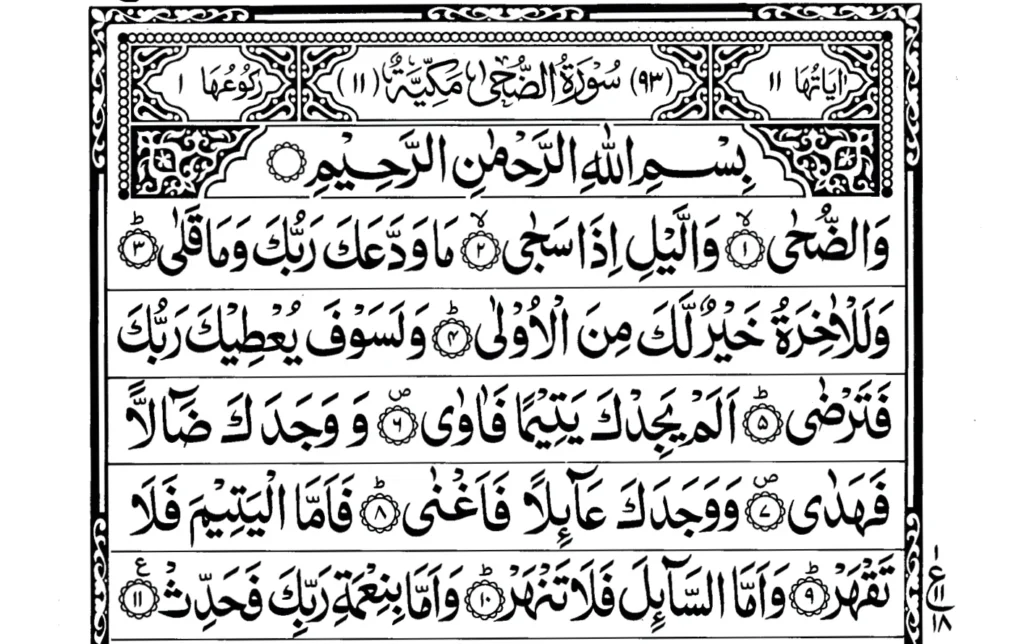 اٰيَاتُهَا ١١ (٩٣) سُوْرَةُ الضُّحٰى مَكِّيَّةٌ (١١) رُكُوْعُهَا ١
بِسْمِ اللّٰهِ الرَّحْمٰنِ الرَّحِيْمِ
وَالضُّحٰى ۙ﴿١﴾ وَالَّيْلِ اِذَا سَجٰى ۙ﴿٢﴾ مَا وَدَّعَكَ رَبُّكَ وَمَا قَلٰى ؕ﴿٣﴾
وَلَلْاٰخِرَةُ خَيْرٌ لَّكَ مِنَ الْاُوْلٰى ؕ﴿٤﴾ وَلَسَوْفَ يُعْطِيْكَ رَبُّكَ
فَتَرْضٰى ؕ﴿٥﴾ اَلَمْ يَجِدْكَ يَتِيْمًا فَاٰوٰى ۪﴿٦﴾ وَ وَجَدَكَ ضَآلًّا
فَهَدٰى ۪﴿٧﴾ وَوَجَدَكَ عَآئِلًا فَاَغْنٰى ؕ﴿٨﴾ فَاَمَّا الْيَتِيْمَ فَلَا
تَقْهَرْ ؕ﴿٩﴾ وَاَمَّا السَّآئِلَ فَلَا تَنْهَرْ ؕ﴿١٠﴾ وَاَمَّا بِنِعْمَةِ رَبِّكَ فَحَدِّثْ ﴿١١﴾ع
١
ع
١١
١٨